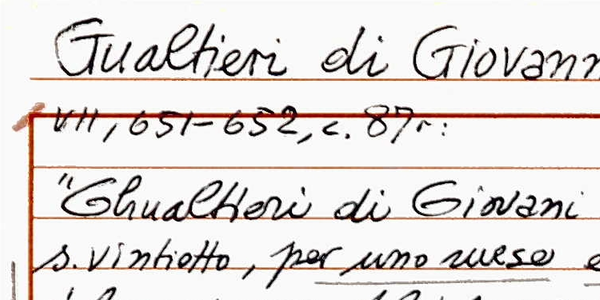 Gualtieri di Giovann
VII, 651-652, c. 87r:
"Ghualtieri di Giovani
s. vintiotto, per uno mese e